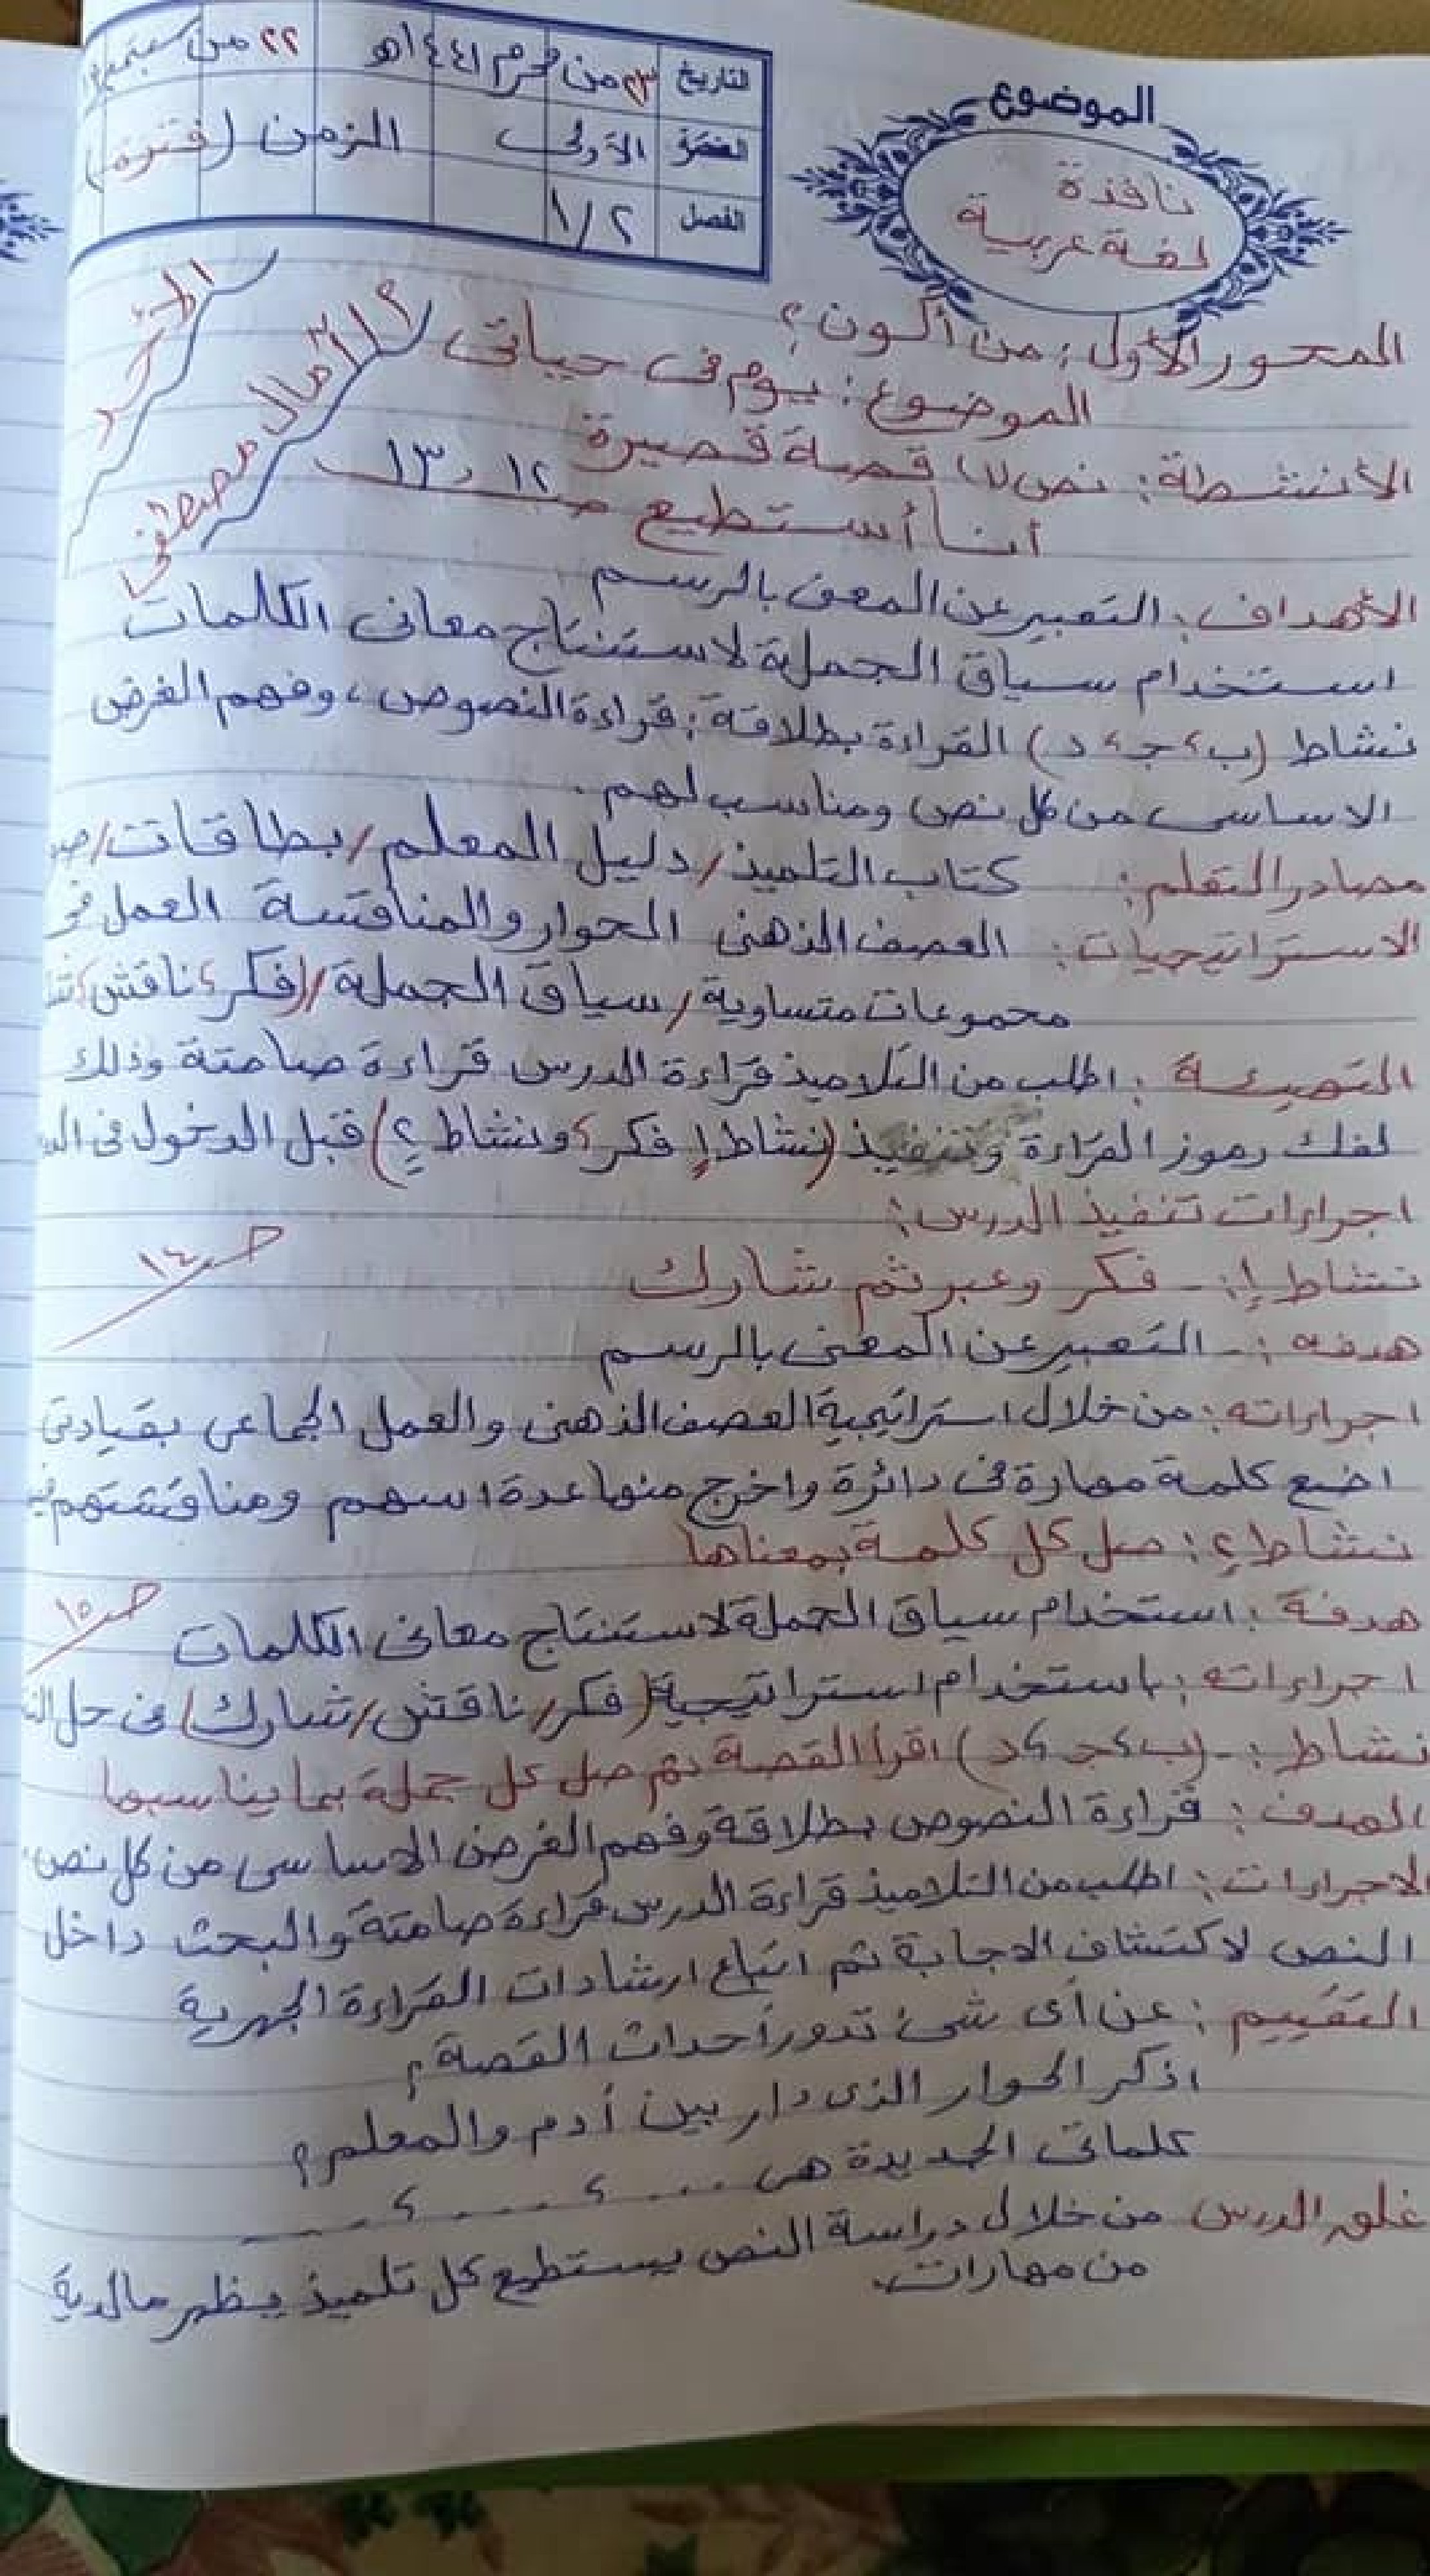 الموضوع
نافذة
لغة عربية
التاريخ ٢٣ من محرم ١٤٤١ه ٢٢ من سبتمبر
الحصة الأولى الزمن (فترة)
الفصل ١/٢
الأحد
أ/ أمال مصطفى
المحور الأول: من أكون؟
الموضوع: يوم فى حياتى
الأنشطة: نص (١) قصة قصيرة
أنا أستطيع صـ ١٢، ١٣
الأهداف: التعبير عن المعنى بالرسم
استخدام سياق الجملة لاستنتاج معانى الكلمات
نشاط (ب، ج، د) القراءة بطلاقة: قراءة النصوص، وفهم الغرض
الاساسى من كل نص ومناسب لهم.
مصادر التعلم: كتاب التلميذ/ دليل المعلم/ بطاقات/
الاستراتيجيات: العصف الذهنى الحوار والمناقشة العمل فى
مجموعات متساوية/ سياق الجملة/ (فكر، ناقش،
التهيئة: اطلب من التلاميذ قراءة الدرس قراءة صامتة وذلك
لفك رموز القراءة وتنفيذ (نشاط أ فكر، ونشاط ٢) قبل الدخول فى
اجراءات تنفيذ الدرس:
نشاط أ:- فكر وعبر ثم شارك
صـ ١٤
هدفه:- التعبير عن المعنى بالرسم
اجراءاته: من خلال استراتيجية العصف الذهنى والعمل الجماعى بقيادتى
اضع كلمة مهارة فى دائرة واخرج منها عدة اسهم ومناقشتهم
نشاط ٢: صل كل كلمة بمعناها
صـ ١٥
هدفة: استخدام سياق الجملة لاستنتاج معانى الكلمات
اجراءاته: باستخدام استراتيجية (فكر/ ناقش/ شارك) فى حل
نشاط:- (ب، ج، د) اقرأ القصة ثم صل كل جملة بما يناسبها
الهدف: قراءة النصوص بطلاقة وفهم الغرض الاساسى من كل نص.
الاجراءات: اطلب من التلاميذ قراءة الدرس قراءة صامتة والبحث داخل
النص لاكتشاف الاجابة ثم اتباع ارشادات القراءة الجهرية
التقييم: عن أى شئ تدور أحداث القصة؟
اذكر الحوار الذى دار بين أدم والمعلم؟
كلماتى الجديدة هى ...، ....، ....
غلق الدرس من خلال دراسة النص يستطيع كل تلميذ يظهر مالدية
من مهارات.